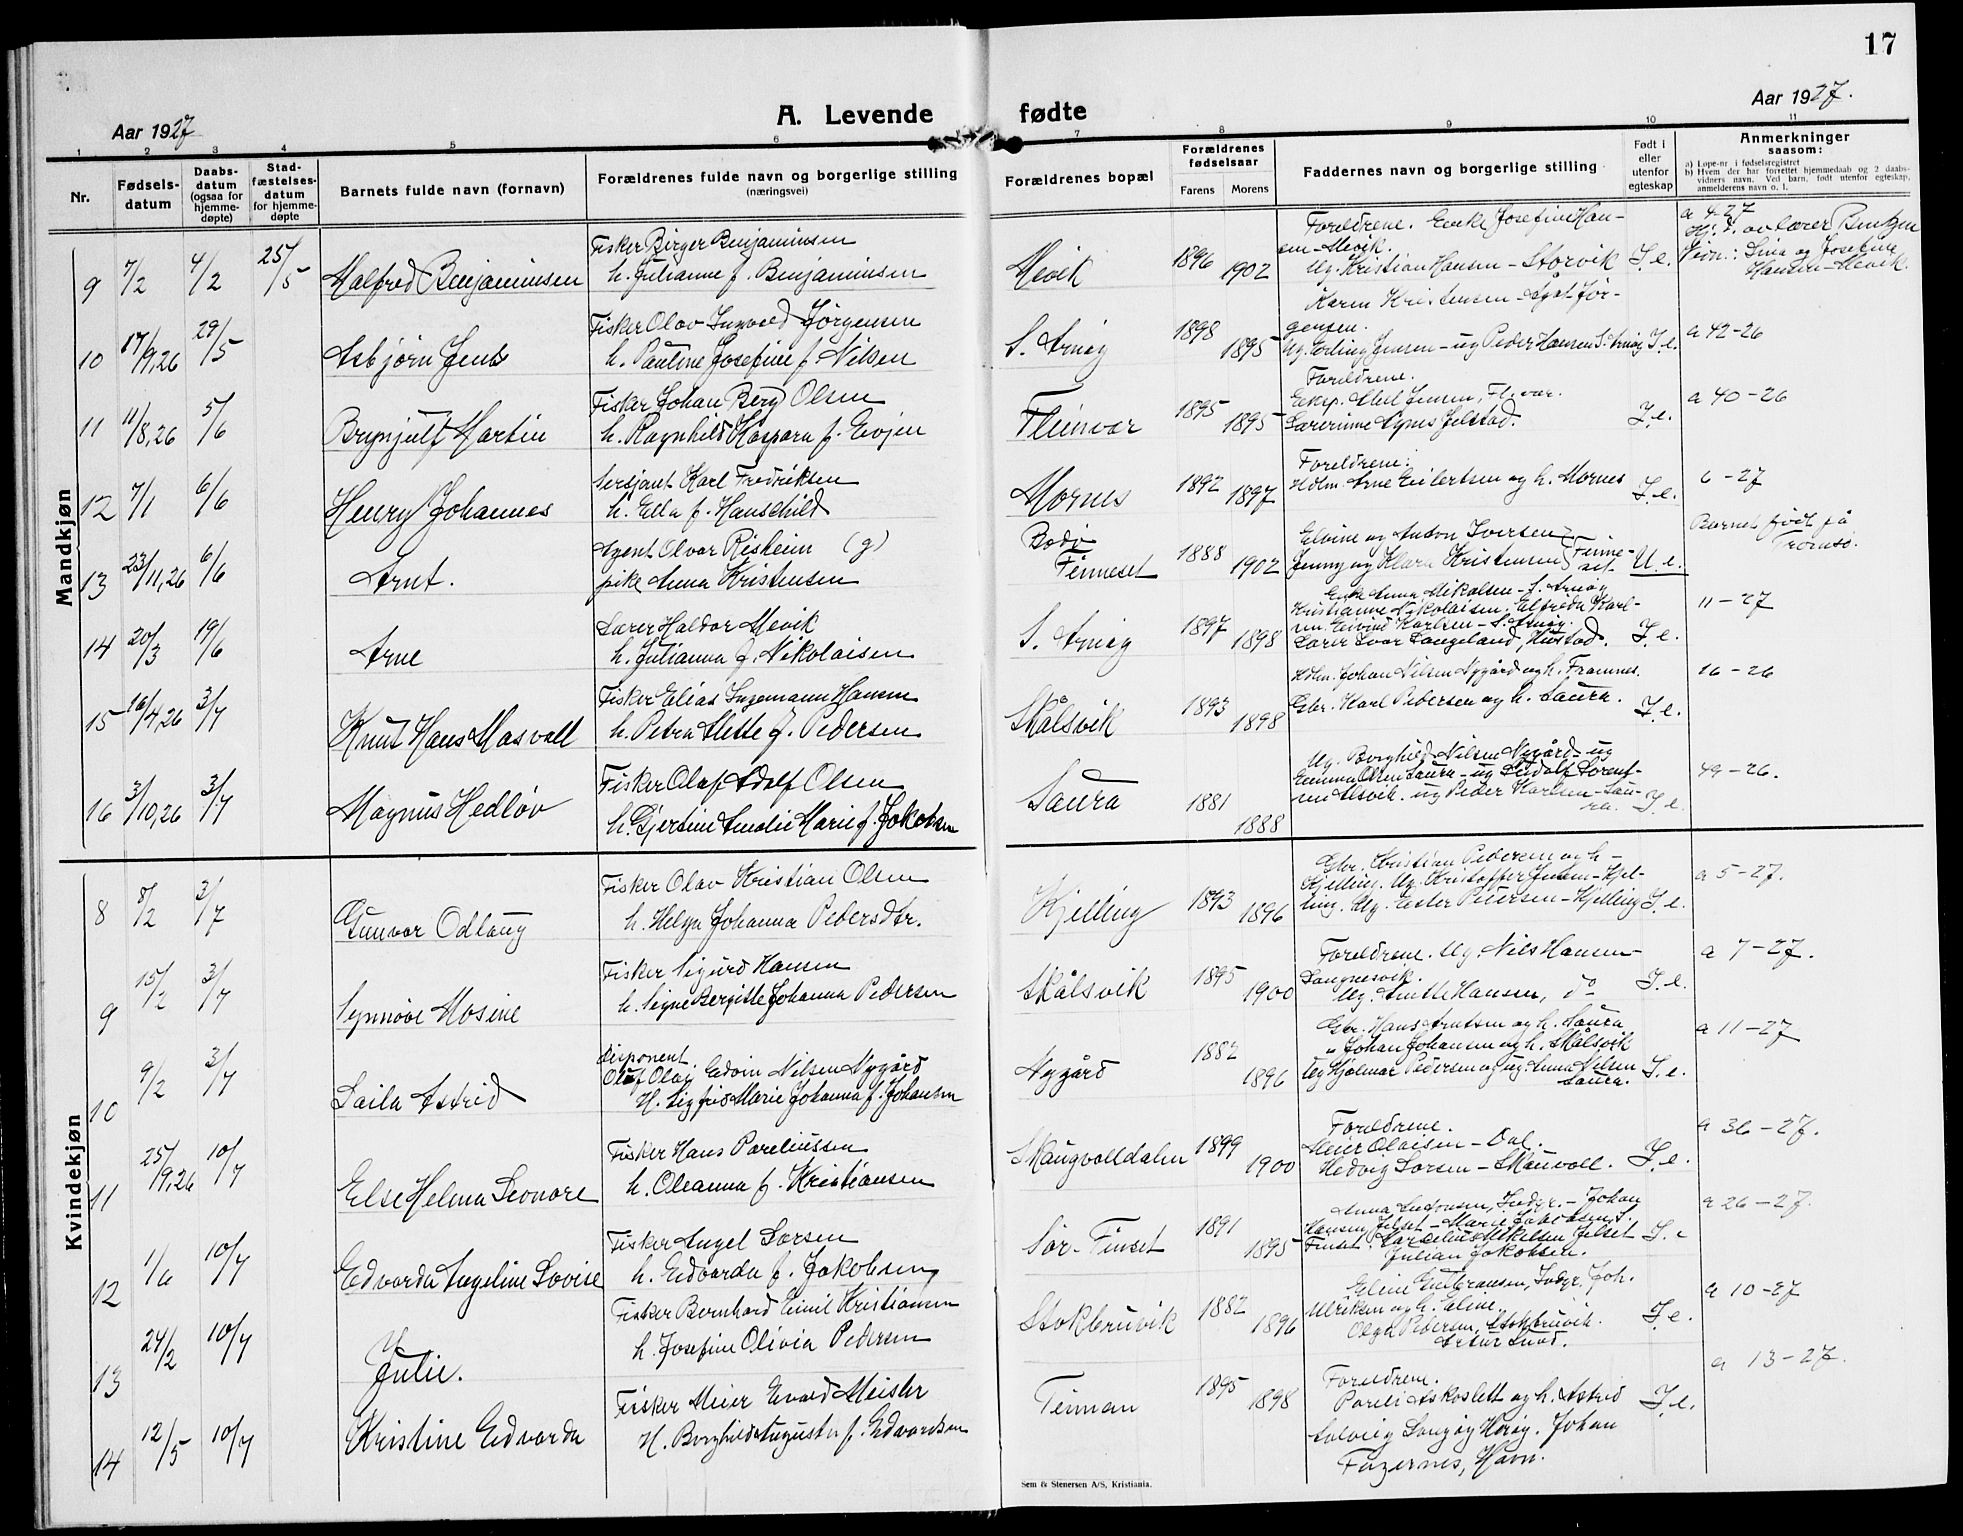 17
Aar 1927
A. Levende fødte
Aar 1927.
1 2 3 4 5 6 7 8 9 10 11
Nr.
Fødsels-
datum
Daabs-
datum
(ogsaa for
hjemme-
døpte)
Stad-
fæstelses-
datum
for hjemme-
døpte
Barnets fulde navn (fornavn)
Forældrenes fulde navn og borgerlige stilling
(næringsvei)
Forældrenes bopæl
Forældrenes
fødselsaar
Farens Morens
Faddernes navn og borgerlige stilling
Født i
eller
utenfor
egteskap
Anmerkninger
saasom:
a) Løpe-nr. i fødselsregistret
b) Hvem der har forrettet hjemmedaab og 2 daabs-
vidners navn. Ved barn, født utenfor egteskap,
anmelderens navn o. l.
Mandkjøn
9 7/2 4/2 25/5 Malfred Benjaminsen
Fisker Birger Benjaminsen
h. Julianne f. Benjaminsen
Mevik 1896 1902
Foreldrene. Enke Josefine Han-
sen - Mevik.
Ug. Kristian Hansen - Storvik I. e.
a 4-27
Hj. d. av lærer Bentzen
Vidn.: Lina og Josefine
Hansen - Mevik.
10 17/9,26 29/5 Asbjørn Jens
Fisker Olav Ingvald Jørgensen
h. Pauline Josefine f. Nilsen
S. Arnøy 1898 1895
Karen Kristensen - Agot Jør-
gensen.
Ug. Erling Jensen - ug Peder Hansen S. Arnøy I. e.
a 42-26
11 11/8,26 5/6 Brynjulf Martin
Fisker Johan Berg Olsen
h. Ragnhild Kaspara f. Evjen
Fleinvær 1895 1895
Foreldrene.
Eksp. Abel Jensen, Fl. vær.
Lærerinne Agnes Jelstad. I. e.
a 40-26
12 7/1 6/6 Henry Johannes
Sersjant Karl Fredriksen
h. Ella f. Hanschild
Mornes 1892 1897
Foreldrene:
Hdlm. Arne Eilertsen og h. Mornes I. e.
6-27
13 23/11,26 6/6 Arnt.
Agent Olvar Risheim (g)
pike Anna Kristensen
Bodø
Finneset 1888 1902
Elvine og Anton Iversen
Jenny og Klara Kristensen Finne-
set. U. e.
Barnet født på
Tromsø.
14 20/3 19/6 Arne
Lærer Haldor Mevik
h. Julianna f. Nikolaisen
S. Arnøy 1897 1898
Enke Anna Mikalsen - S. Arnøy
Kristianne Nikolaisen. Elfreda Karl-
sen. Eivind Karlsen - S. Arnøy.
Lærer Ivar Langeland, Hustad. I. e.
11-27
15 16/4,26 3/7 Knut Hans Masvall
Fisker Elias Ingemann Hansen
h. Petra Mette f. Pedersen
Skålsvik 1893 1898
Hdlm. Johan Nilsen Nygård og h. Framnes.
Gbr. Karl Pedersen og h. Saura. I. e.
16-26
16 3/10,26 3/7 Magnus Hedløv
Fisker Olaf Adolf Olsen
h. Gjertine Amalie Marie f. Jakobsen
Saura 1881 1888
Ug. Borghild Nilsen Nygård - ug
Emma Olsen Saura - ug Leidolf Lorent-
sen Alsvik. ug Peder Karlsen - Sau-
ra. I. e.
49-26.
Kvindekjøn
8 8/2 3/7 Gunvor Odlaug
Fisker Olav Kristian Olsen
h. Helga Johanna Pedersdtr.
Kjelling 1893 1896
Gbr. Kristian Pedersen og h -
Kjelling. Ug. Kristoffer Jensen - Kjel-
ling. Ug. Ester Petersen - Kjelling I. e.
a 5-27.
9 15/2 3/7 Synnøve Mosine
Fisker Sigurd Hansen
h. Signe Bergitte Johanna Pedersen
Skålsvik 1895 1900
Foreldrene. Ug. Nils Hansen -
Langnesvik.
Ug. Anette Hansen, do I. e.
a 7-27.
10 9/2 3/7 Laila Astrid
Disponent
Olaf Edvin Nilsen Nygård
H. Sigfrid Marie Johanna f. Johansen
Nygård 1882 1896
Gbr. Hans Arntsen og h. Saura
" Johan Johansen og h. Skålsvik
Ug Hjalmar Pedersen og ug. Anna Nilsen
Saura. I. e.
a 11-27
11 25/9,26 10/7 Else Helma Leonore
Fisker Hans Pareliussen
h. Oleanna f. Kristiansen
Skaugvolldalen 1899 1900
Foreldrene.
Meier Olaisen - Dal.
Hedvig Larsen - Skauvoll. I. e.
a 36-27.
12 1/6 10/7 Edvarda Angeline Lovise
Fisker Angel Larsen
h. Edvarda f. Jakobsen
Sør-Finset 1891 1895
Anna Andersen, Indyr. - Johan
Hansen Jelset - Marie Jakobsen S.
Finset. Kornelius Mikelsen Jelset
Julian Jakobsen. I. e
a 26-27.
13 24/2 10/7 Julie.
Fisker Bernhard Emil Kristiansen
h. Josefine Olivia Pedersen
Stokbruvik 1882 1896
Eline Gulbransen, Indyr. Joh.
Ulriksen og h. Eline.
Olga Pedersen, Stokbruvik.
Artur Lund. I. e.
a 10-27
14 12/5 10/7 Kristine Edvarda
Fisker Meier Evald Meisler
H. Borghild Augusta f. Edvardsen
Teinnan 1895 1898
Foreldrene.
Pareli Askoslett og h. Astrid
Solveig Langøy Horøy. Johan
Fagernes, Havn. I. e.
a 13-27.
Sem & Stenersen A/S, Kristiania.